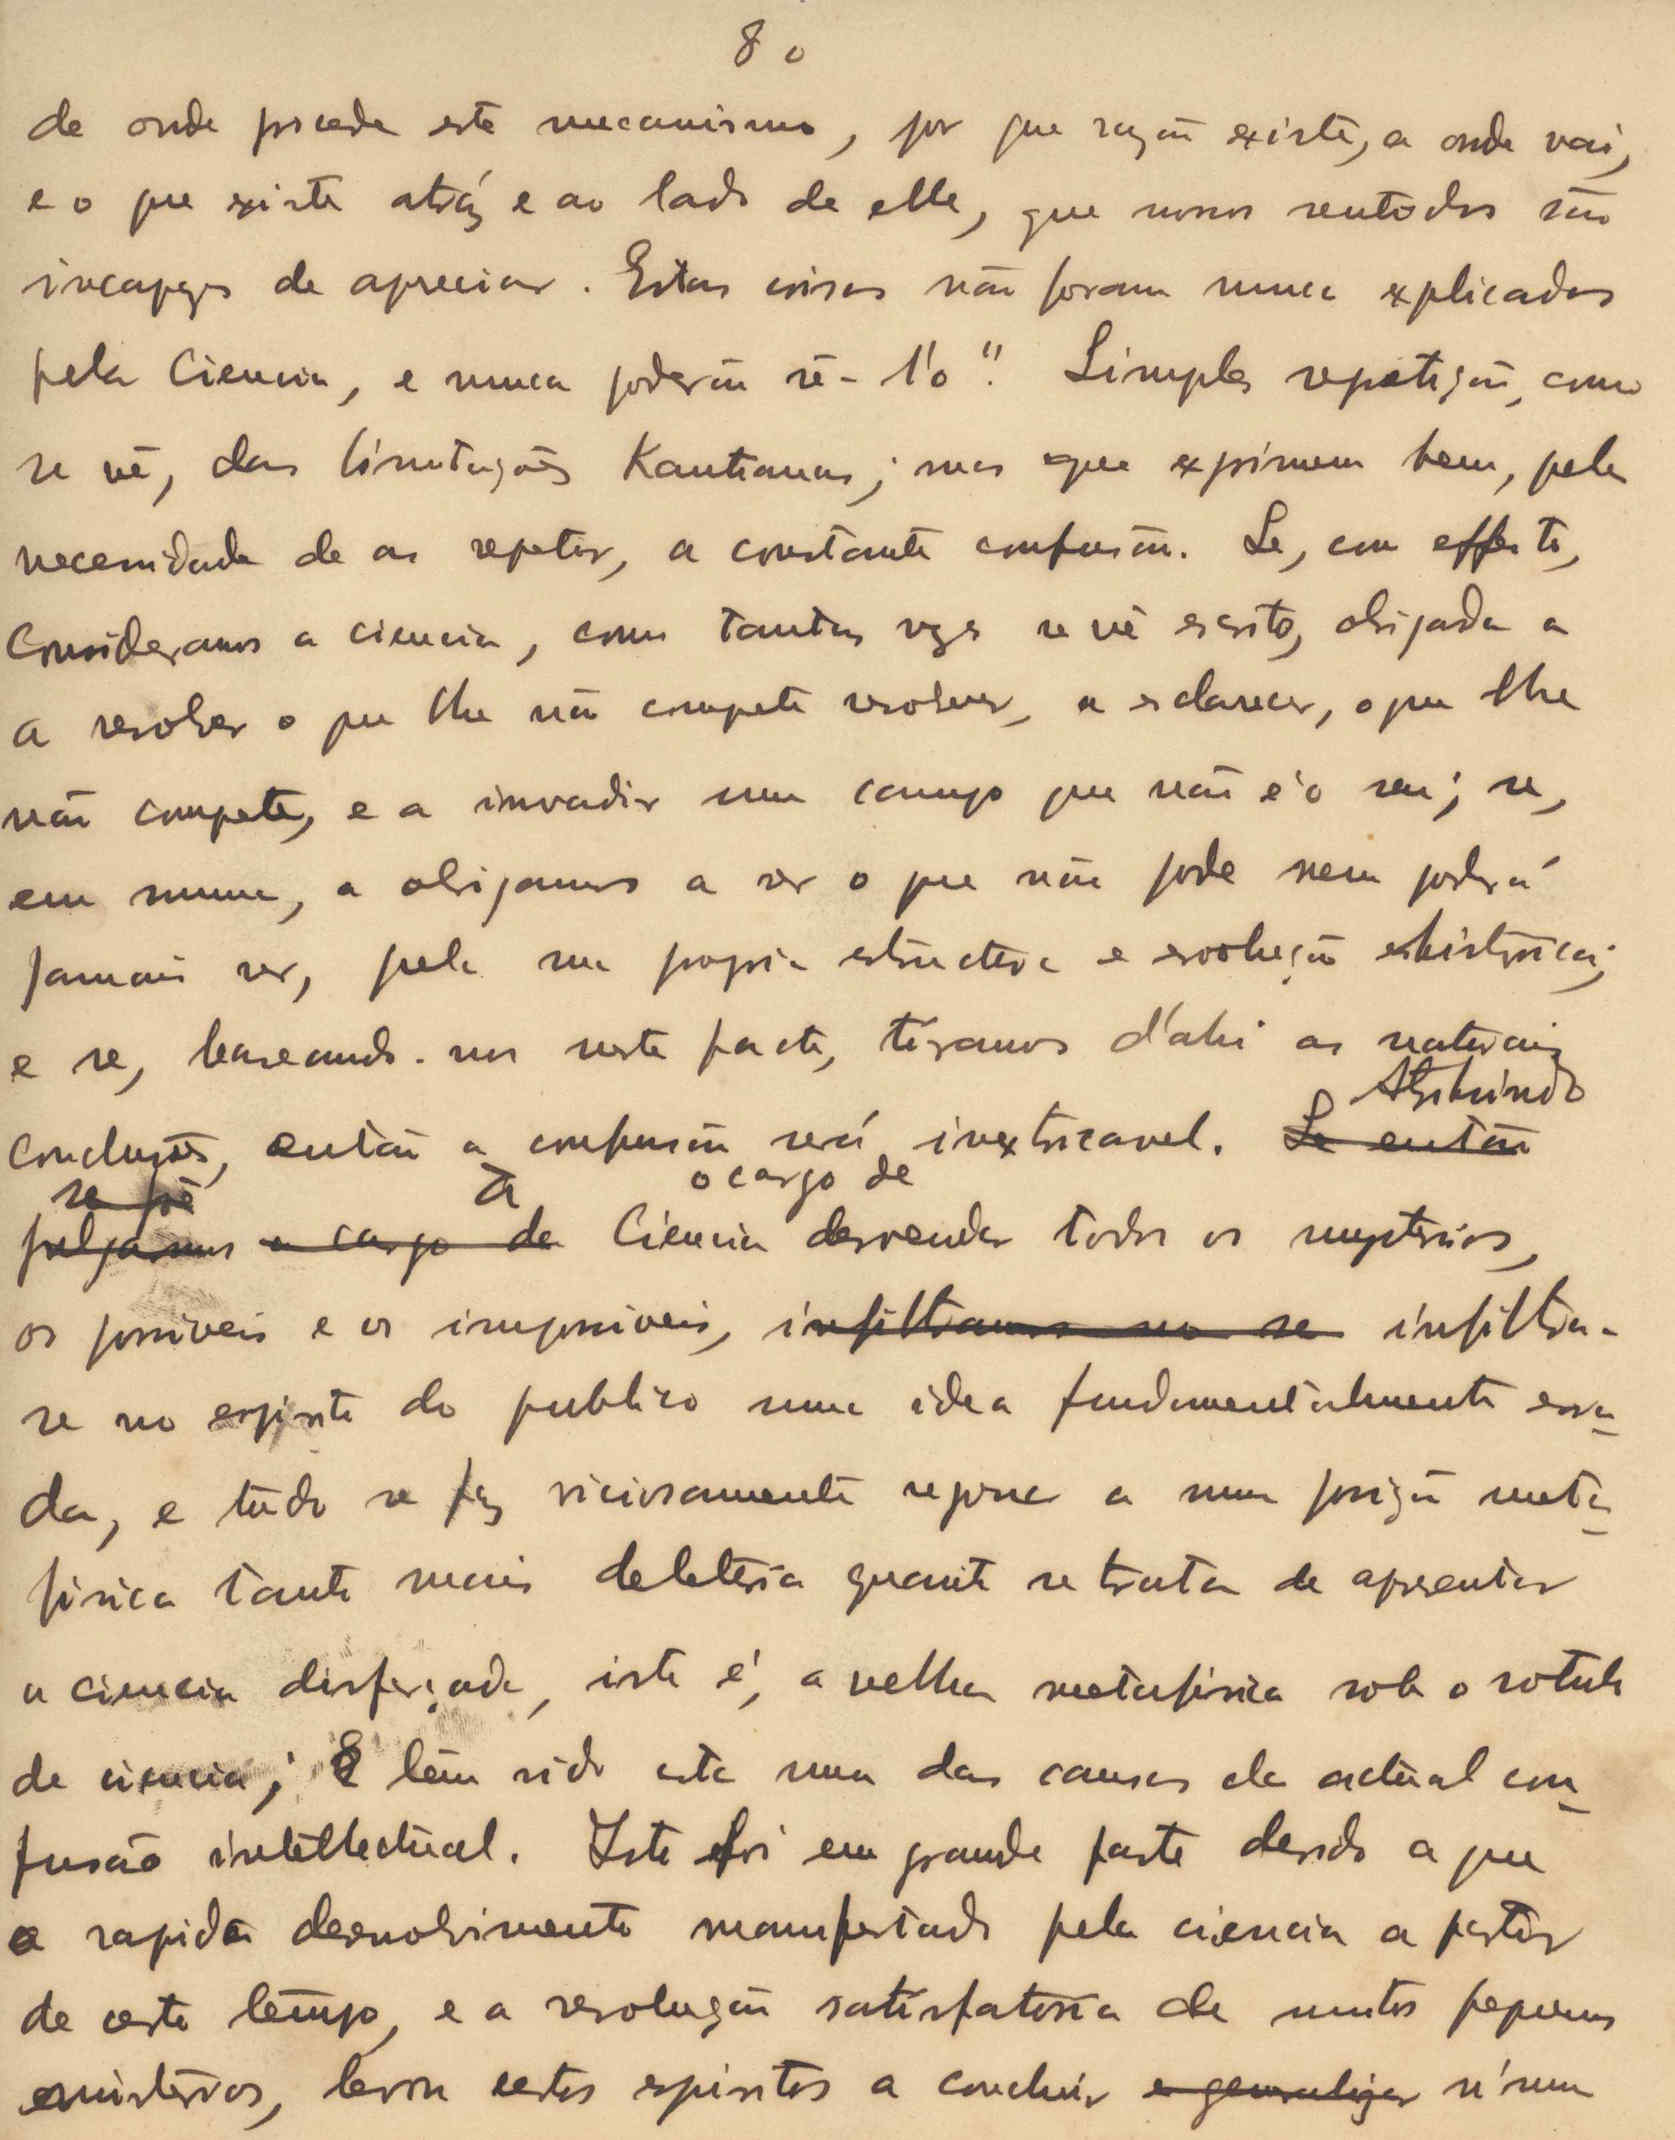 80
de onde procede este mecanismo, por que razão existe, a onde vai,
e o que existe atráz e ao lado de elle, que nossos sentidos são
incapazes de apreciar. Estas coisas não foram nunca explicadas
pela Ciencia, e nunca poderão sê-l'o". Simples repetição, como
se vê, das limitações Kantianas; mas que exprimem bem, pela
necessidade de as repetir, a constante confusão. Se, com effeito,
Consideramos a ciencia, como tantas vezes se vê escrito, obrigada a
a resolver o que lhe não compete resolver, a esclarecer, o que lhe
não compete, e a invadir um campo que não é o seu; se,
em summa, a obrigamos a ver o que não pode nem poderá
jamais ver, pela sua propria estructura e evolução historica;
e se, baseando-nos neste facto, tiramos d'ahi as naturais
Atribuindo
conclusões, então a confusão será inextricavel. Se então
se põe à o cargo de
julgarmos a cargo da Ciencia desvendar todos os mysterios,
os possiveis e os impossiveis, infiltramos no se infiltra-
se no espirito do publico uma idea fundamentalmente erra-
da, e tudo se faz viciosamente repousar a uma posição meta-
fisica tanto mais deleteria quanto se trata de apresentar
a ciencia disfarçada, isto é, a velha metafisica sob o rotulo
de ciencia; E tem sido esta uma das causas da actual con-
fusão intellectual. Isto foi em grande parte devido a que
o rapido desenvolvimento manifestado pela ciencia a partir
de certo tempo, e a resolução satisfatoria de muitos pequenos
misterios, levou certos espiritos a concluir e generalizar n'um